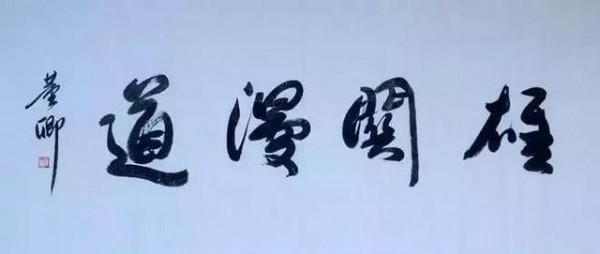 雄關漫道
董卿